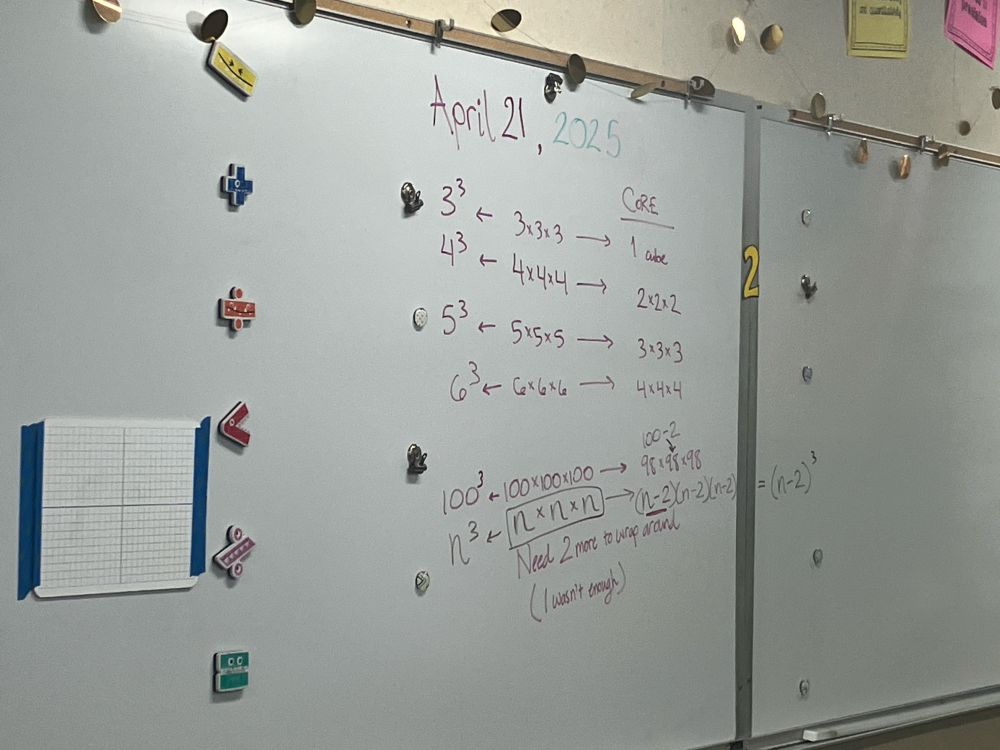 April 21, 2025
CORE
3³ ← 3×3×3 → 1 cube
4³ ← 4×4×4 → 2×2×2
5³ ← 5×5×5 → 3×3×3
6³ ← 6×6×6 → 4×4×4
100-2
100³ ← 100×100×100 → 98×98×98
n³ ← n×n×n → (n-2)(n-2)(n-2) = (n-2)³
Need 2 more to wrap around
(1 wasn't enough)
2